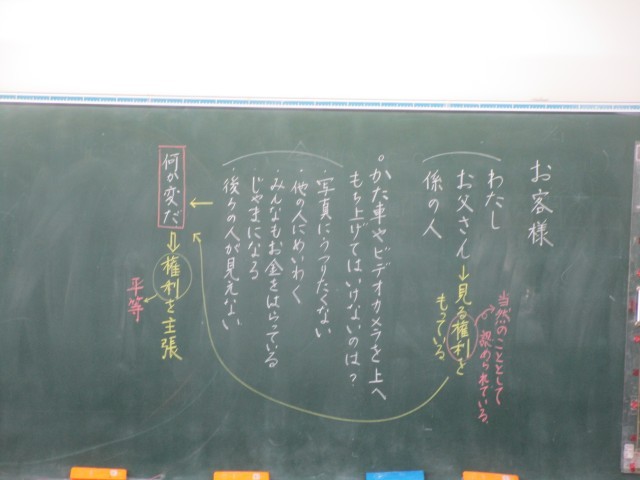 お客様
わたし
お父さん→見る権利を
もっている
当然のこととして
認められている。
係の人
。かた車やビデオカメラを上へ
もち上げてはいけないのは?
・写真にうつりたくない
・他の人にめいわく
・みんなもお金をはらっている
じゃまになる
・後ろの人が見えない
何か変だ⇒権利を主張
平等